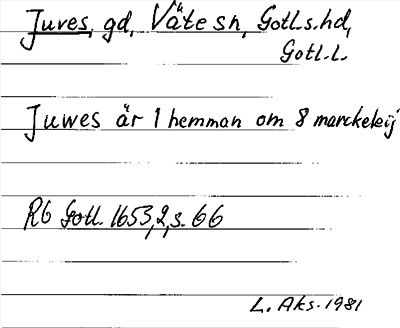 Juves, gd, Väte sn, Gotl.s.hd,
Gotl.L.
Juwes är 1 hemman om 8 marckeleij
Rb Gotl. 1653,2,s. 66
L. Aks. 1981